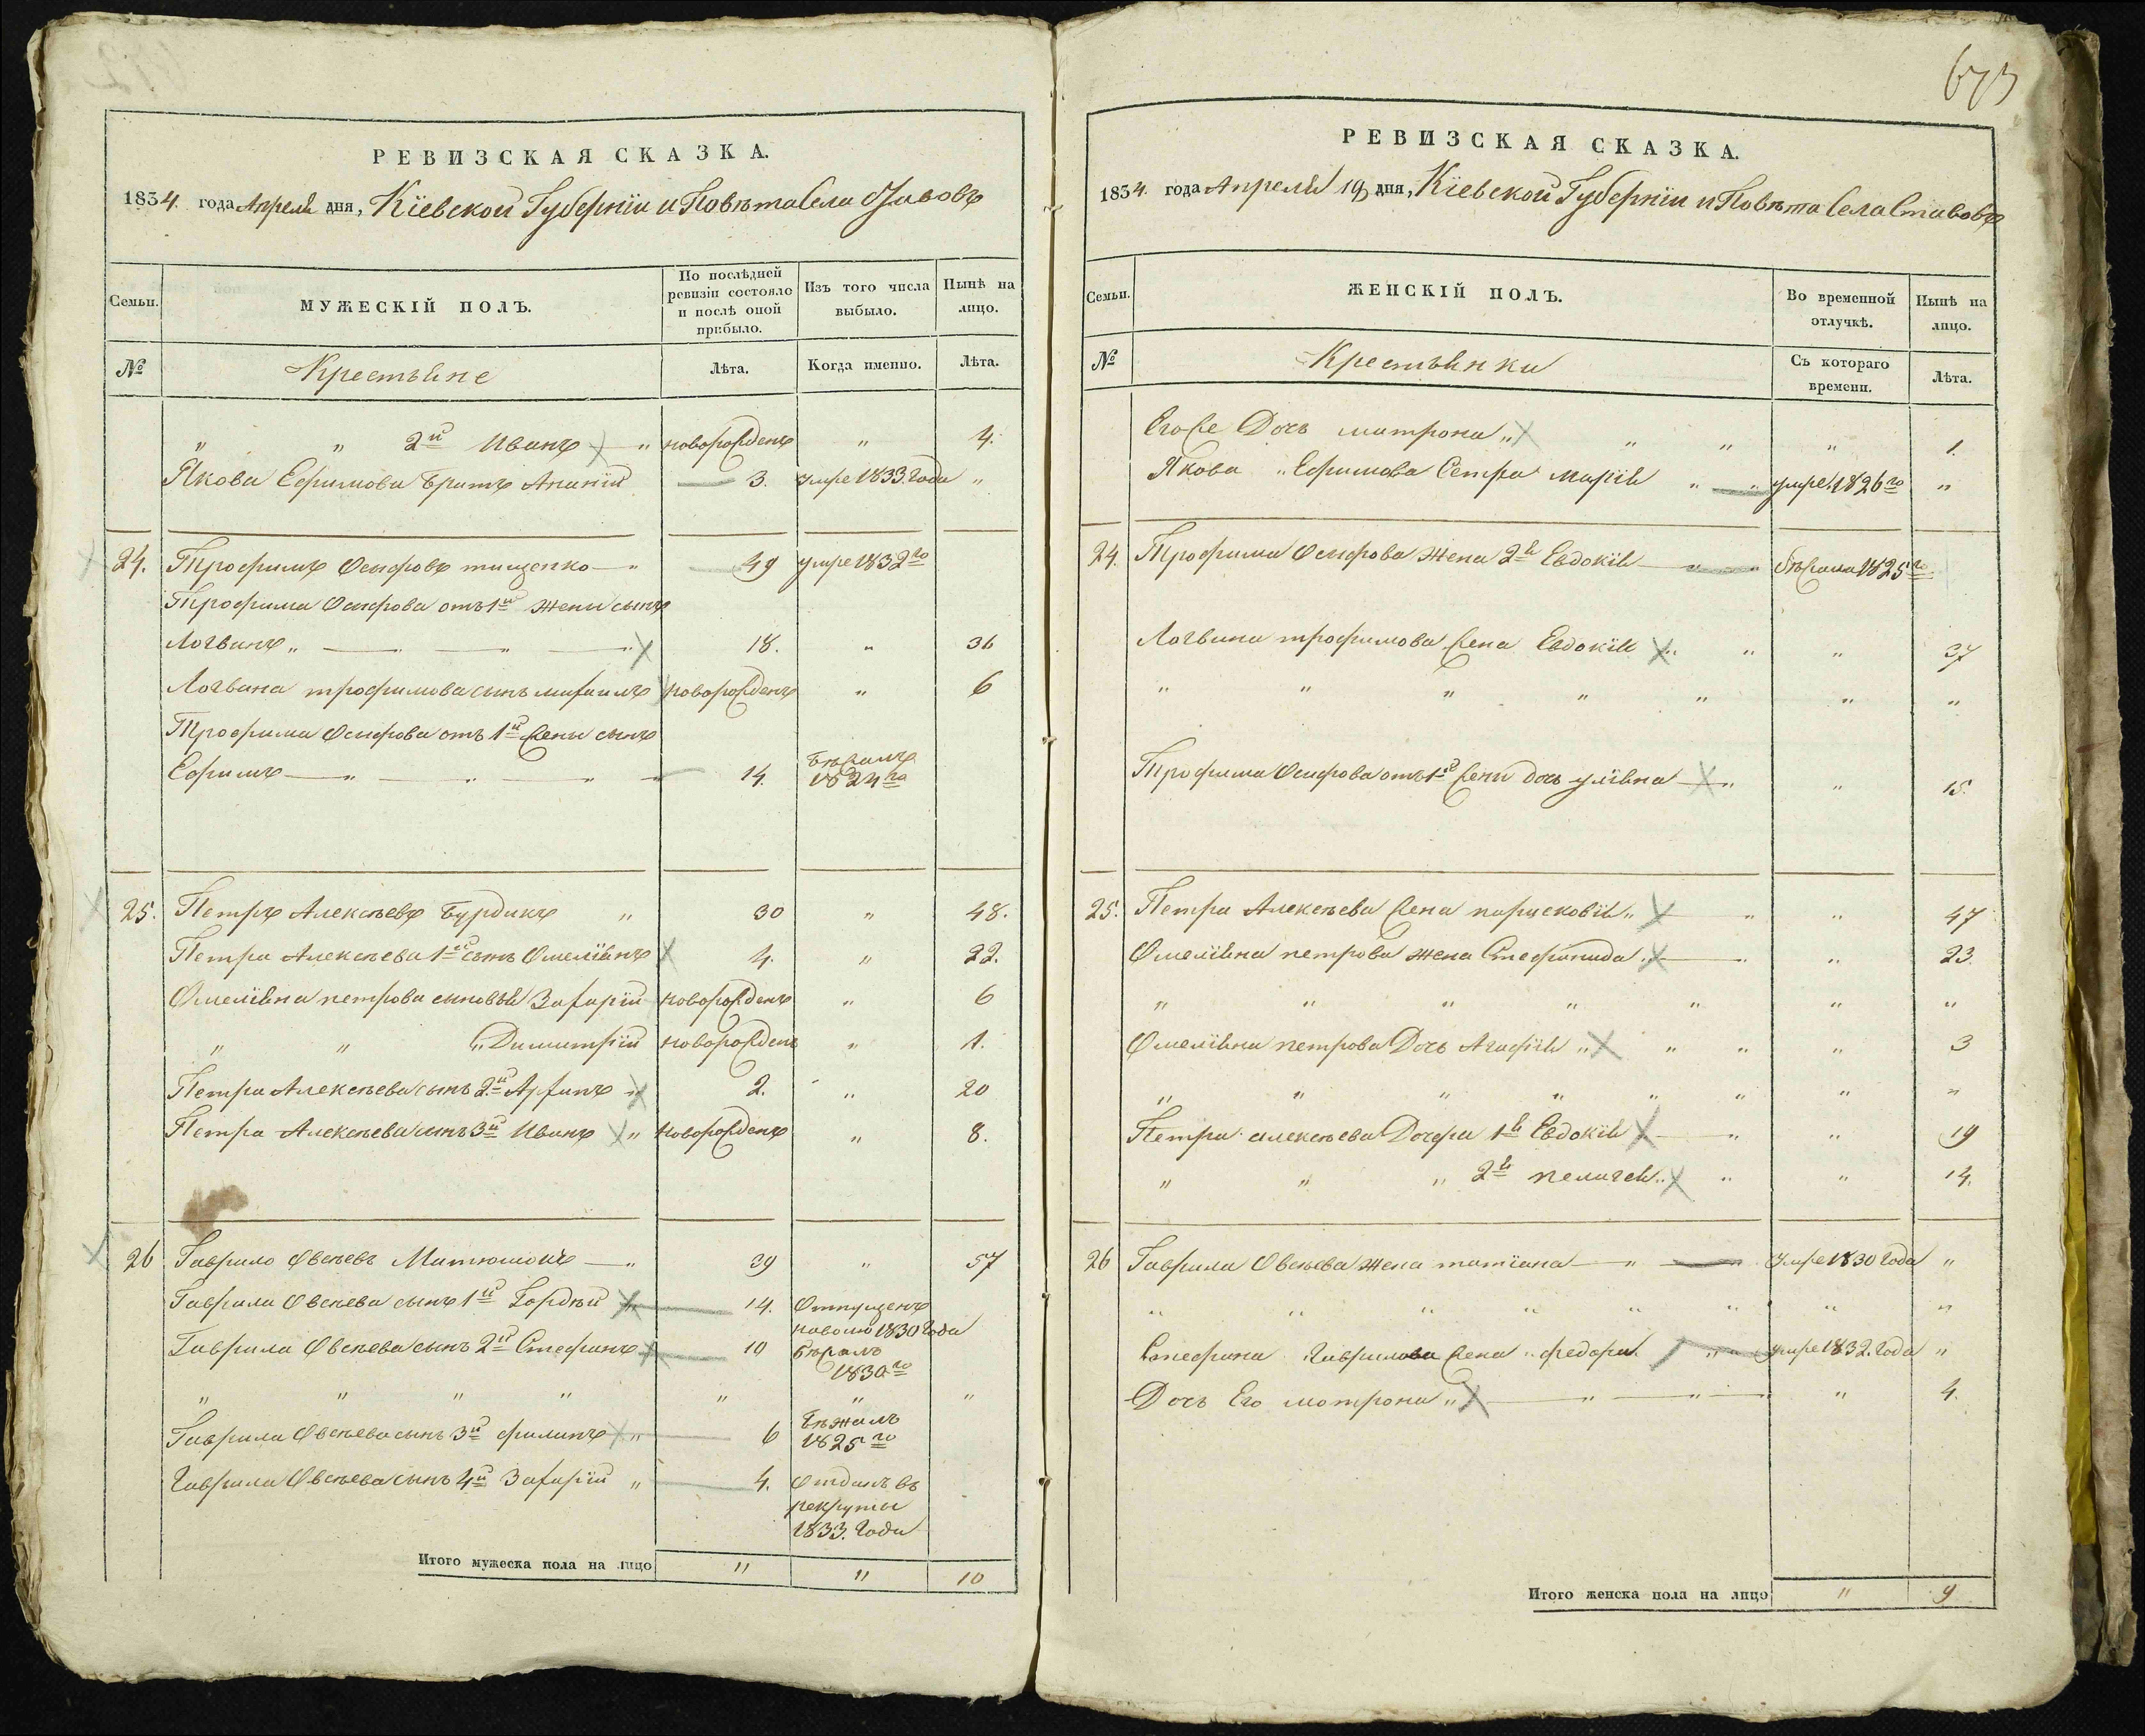 673
РЕВИЗСКАЯ СКАЗКА.
1834. года Апреля дня, Кіевской Губерніи и Повѣта Села Ставовъ
Семьи.
МУЖЕСКІЙ ПОЛЪ.
По послѣдней ревизіи состояло и послѣ оной прибыло.
Изъ того числа выбыло.
Нынѣ на лицо.
№
Крестьяне
Лѣта.
Когда именно.
Лѣта.
" " 2й Иванъ " новорожденъ " 4.
Якова Ефимова братъ Ананій 3. умре 1833. года "
24. Трофимъ Осифовъ тищенко " 49 умре 1832го
Трофима Осифова отъ 1й жены сынъ
Логвинъ " " " 18. " 36
Логвина трофимова сынъ михаилъ новорожденъ " 6
Трофима Осифова отъ 1й жены сынъ
Ефимъ " " " 14. бѣжалъ 1824го
25. Петръ Алексѣевъ Бурдикъ " 30 " 48.
Петра Алексѣева 1й сынъ Омеліянъ 4. " 22.
Омеліяна петрова сыновья Захарій новорожденъ " 6
" " " Димитрій новорожденъ " 1.
Петра Алексѣева сынъ 2й Архипъ " 2. " 20
Петра Алексѣева сынъ 3й Иванъ " новорожденъ " 8.
26 Гаврило Овсѣевъ Митюшокъ " 39 " 57
Гаврила Овсѣева сынъ 1й Гордѣй 14. Отпущенъ
наволю 1830 года
Гаврила Овсѣева сынъ 2й Стефанъ 10 бѣжалъ
1830го
" " " " " " "
Гаврила Овсѣева сынъ 3й филипъ " 6 Бѣжалъ
1825го
Гаврила Овсѣева сынъ 4й Захарій " 4. Отданъ въ
рекруты
1833. года
Итого мужеска пола на лицо " " 10
РЕВИЗСКАЯ СКАЗКА.
1834. года Апреля 19 дня, Кіевской Губерніи и Повѣта Села Ставовъ
Семьи.
ЖЕНСКІЙ ПОЛЪ.
Во временной отлучкѣ.
Нынѣ на лицо.
№
Крестьянки
Съ котораго времени.
Лѣта.
Егоже Дочь матрона " " " " 1.
Якова Ефимова Сетра марія " " умре 1826го "
24. Трофима Осифова жена 2я Евдокія " " бѣжала 1825го
Логвина трофимова жена Евдокія " " " 37
" " " " " " "
Трофима Осифова отъ 1й жены дочь уліяна " " 15.
25. Петра Алексѣева жена параскевія " " " 47
Омеліяна петрова жена Стефанида " " " 23.
" " " " " " "
Омеліяна петрова Дочь Агафія " " " " 3
" " " " " " " "
Петра алексѣева Дочери 1я Евдокія " " 19
" " " 2я пелагея " " " 14.
26 Гаврила Овсѣева жена татіана " умре 1830 года "
" " " " " " " "
Стефана Гаврилова жена федора " " умре 1832. года "
Дочь Его мотрона " " " " " 4.
Итого женска пола на лицо " 9